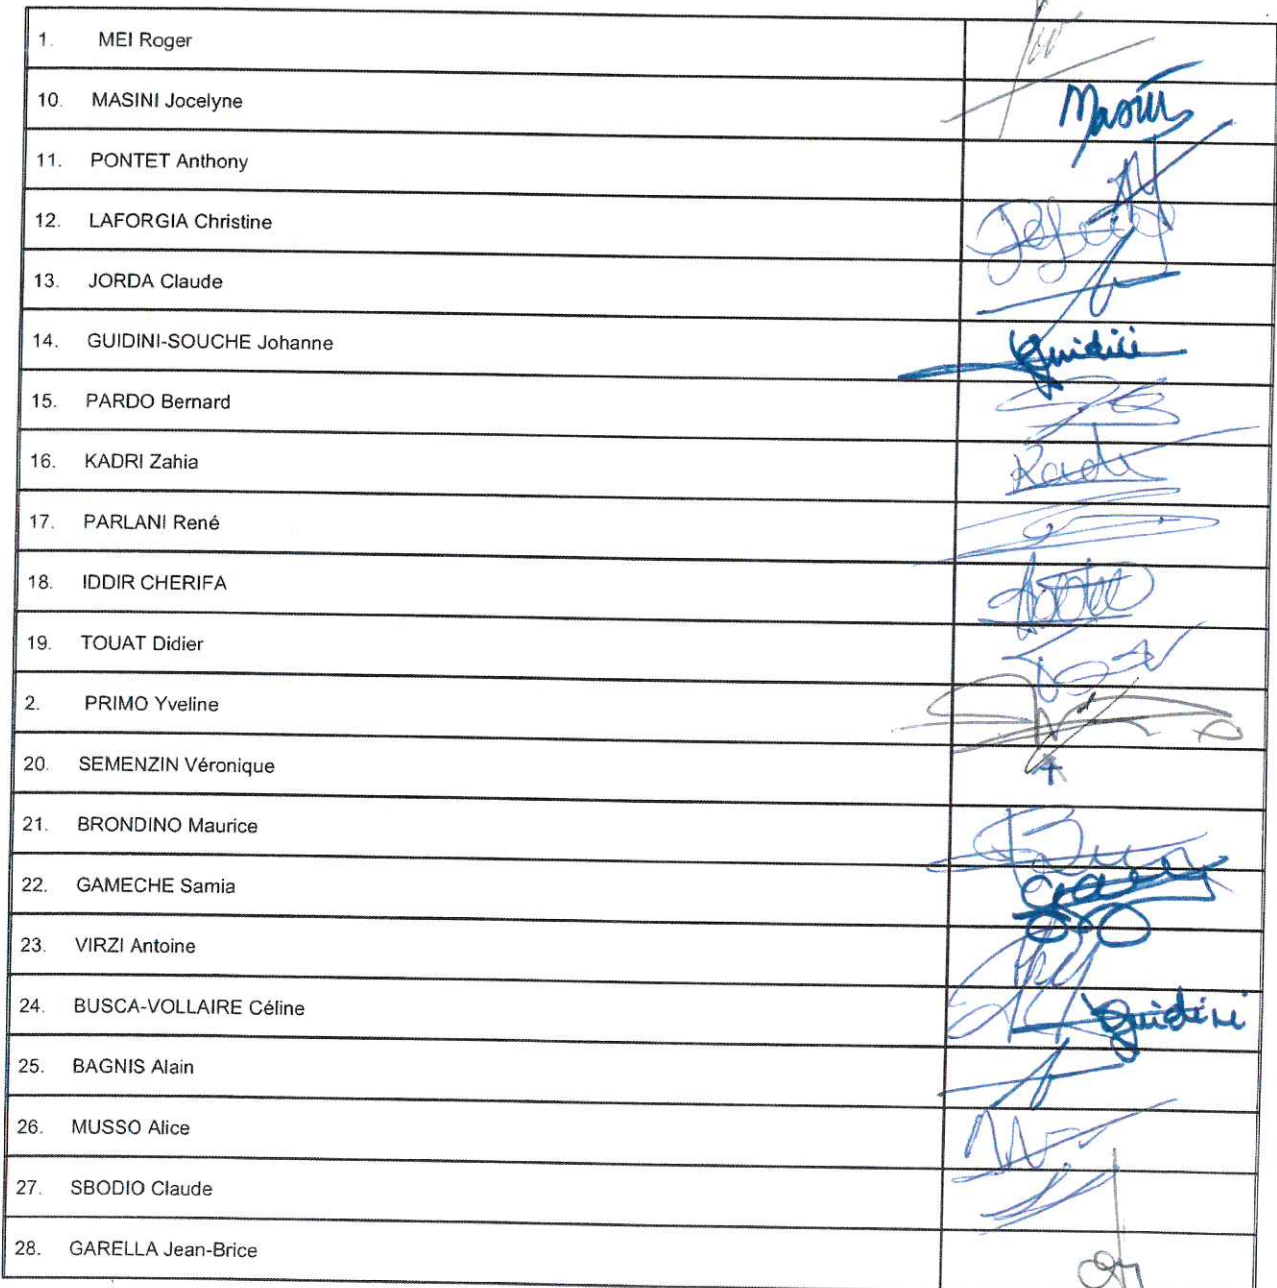 1. MEI Roger
10. MASINI Jocelyne Masini
11. PONTET Anthony
12. LAFORGIA Christine
13. JORDA Claude
14. GUIDINI-SOUCHE Johanne Guidini
15. PARDO Bernard
16. KADRI Zahia Kadri
17. PARLANI René
18. IDDIR CHERIFA
19. TOUAT Didier
2. PRIMO Yveline
20. SEMENZIN Véronique
21. BRONDINO Maurice
22. GAMECHE Samia
23. VIRZI Antoine
24. BUSCA-VOLLAIRE Céline Guidini
25. BAGNIS Alain
26. MUSSO Alice
27. SBODIO Claude
28. GARELLA Jean-Brice